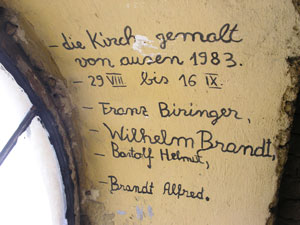 - die Kirch gemalt
von ausen 1983.
- 29 VIII bis 16 IX.
- Franz Biringer,
- Wilhelm Brandt,
- Bartolf Helmut,
- Brandt Alfred.